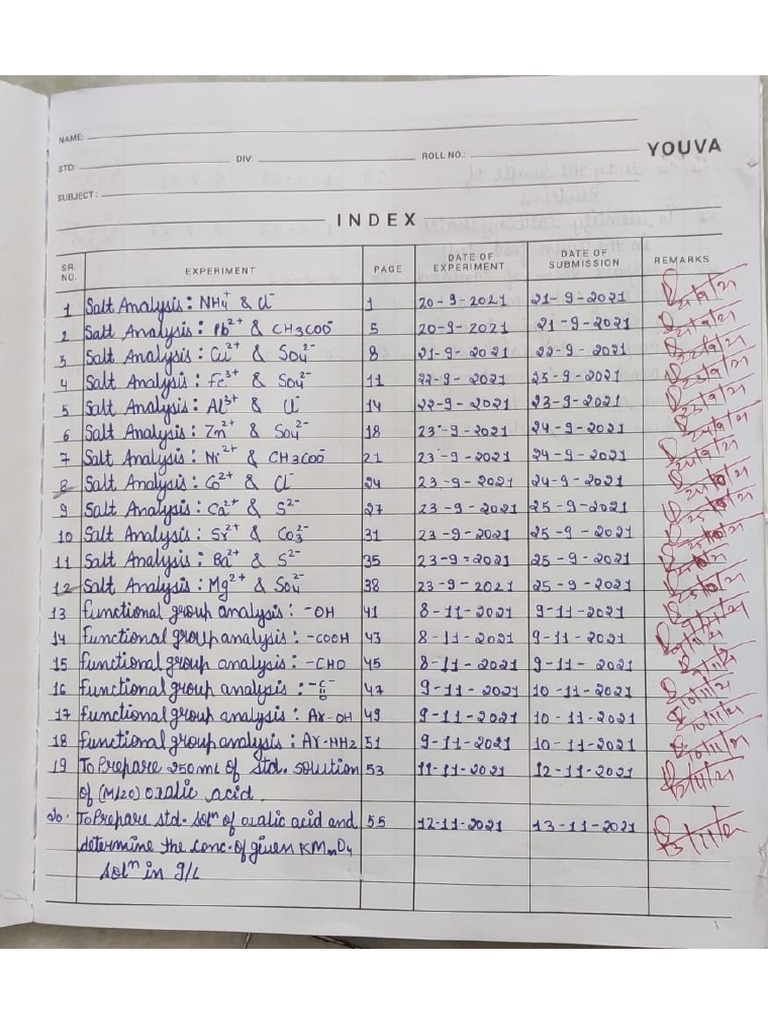 NAME:
STD: DIV: ROLL NO.: YOUVA
SUBJECT:
INDEX
SR. NO. EXPERIMENT PAGE DATE OF EXPERIMENT DATE OF SUBMISSION REMARKS
1 Salt Analysis: NH₄⁺ & Cl⁻ 1 20-9-2021 21-9-2021 21/9/21
2 Salt Analysis: Pb²⁺ & CH3COO⁻ 5 20-9-2021 21-9-2021 21/9/21
3 Salt Analysis: Cu²⁺ & SO₄²⁻ 8 21-9-2021 22-9-2021 22/9/21
4 Salt Analysis: Fe³⁺ & SO₄²⁻ 11 22-9-2021 23-9-2021 23/9/21
5 Salt Analysis: Al³⁺ & Cl⁻ 14 22-9-2021 23-9-2021 23/9/21
6 Salt Analysis: Zn²⁺ & SO₄²⁻ 18 23-9-2021 24-9-2021 24/9/21
7 Salt Analysis: Ni²⁺ & CH3COO⁻ 21 23-9-2021 24-9-2021 24/9/21
8 Salt Analysis: Co²⁺ & Cl⁻ 24 23-9-2021 24-9-2021
9 Salt Analysis: Ca²⁺ & S²⁻ 27 23-9-2021 25-9-2021
10 Salt Analysis: Sr²⁺ & CO₃²⁻ 31 23-9-2021 25-9-2021
11 Salt Analysis: Ba²⁺ & S²⁻ 35 23-9-2021 25-9-2021
12 Salt Analysis: Mg²⁺ & SO₄²⁻ 38 23-9-2021 25-9-2021
13 functional group analysis: -OH 41 8-11-2021 9-11-2021 9/11/21
14 functional group analysis: -COOH 43 8-11-2021 9-11-2021 9/11/21
15 functional group analysis: -CHO 45 8-11-2021 9-11-2021 9/11/21
16 functional group analysis: -C- 47 9-11-2021 10-11-2021 10/11/21
O
17 functional group analysis: Ar-OH 49 9-11-2021 10-11-2021 10/11/21
18 functional group analysis: Ar-NH2 51 9-11-2021 10-11-2021 10/11/21
19 To Prepare 250 mL of std. solution 53 11-11-2021 12-11-2021 12/11/21
of (M/20) oxalic acid.
20. To Prepare std. solⁿ of oxalic acid and 55 12-11-2021 13-11-2021 13/11/21
determine the conc. of given KMnO₄
solⁿ in g/L